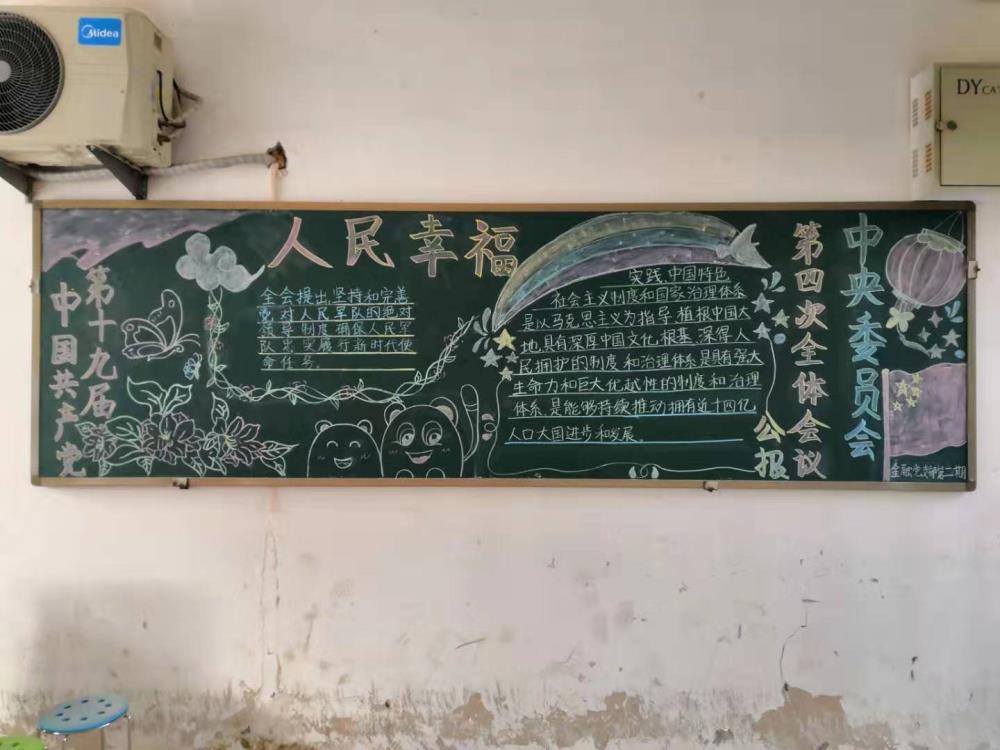 Midea
DY
人民幸福
第十九届
中国共产党
全会提出,坚持和完善
党对人民军队的绝对
领导制度,确保人民军
队忠实履行新时代使
命任务。
实践,中国特色
社会主义制度和国家治理体系
是以马克思主义为指导,植根中国大
地,具有深厚中国文化,根基,深得人
民拥护的制度和治理体系,是具有强大
生命力和巨大优越性的制度和治理
体系,是能够持续推动拥有近十四亿
人口大国进步和发展。
第四次全体会议
公报
中央委员会
金融党支部第二期